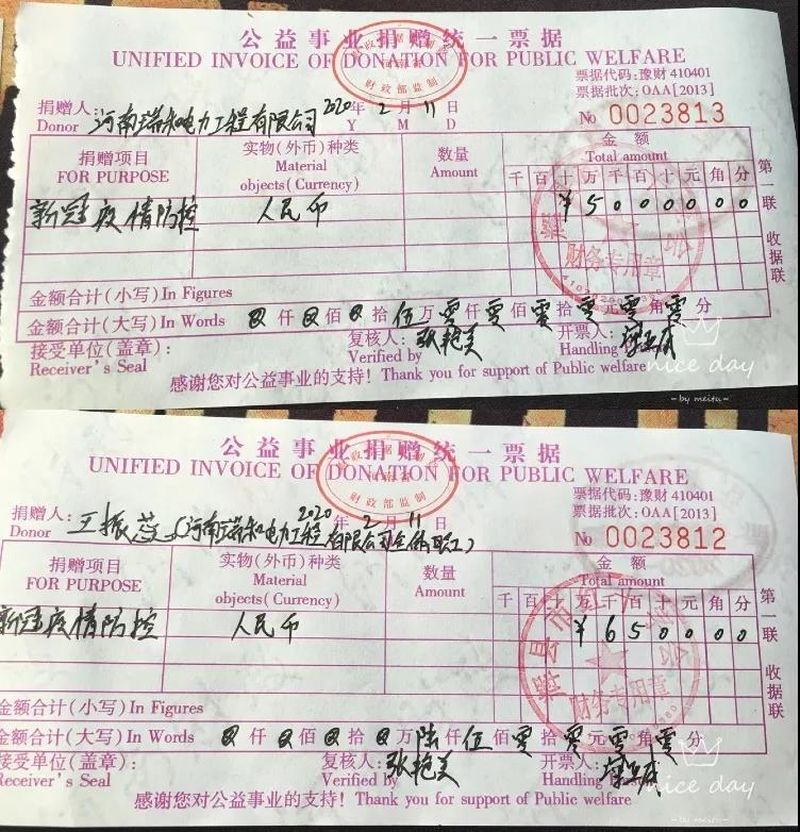 公益事业捐赠统一票据
UNIFIED INVOICE OF DONATION FOR PUBLIC WELFARE
财政部监制
票据代码:豫财 410401
票据批次:OAA[2013]
No 0023813
捐赠人: 河南瑞和电力工程有限公司 2020年 2月 11日
Donor Y M D
捐赠项目 实物(外币)种类 数量 金额
FOR PURPOSE Material objects(Currency) Amount Total amount
千 百 十 万 千 百 十 元 角 分
新冠疫情防控 人民币 ¥ 5 0 0 0 0 0 0
第一联 收据联
财务专用章
金额合计(小写)In Figures
金额合计(大写)In Words ⊗仟⊗佰⊗拾伍万零仟零佰零拾零元零角零分
接受单位(盖章): 复核人: 张艳美 开票人:
Receiver's Seal Verified by Handling
感谢您对公益事业的支持! Thank you for support of Public welfare
nice day
- by meitu -
公益事业捐赠统一票据
UNIFIED INVOICE OF DONATION FOR PUBLIC WELFARE
财政部监制
票据代码:豫财 410401
票据批次:OAA[2013]
No 0023812
捐赠人: 王振 (河南瑞和电力工程有限公司全体职工) 2020年 2月 11日
Donor
捐赠项目 实物(外币)种类 数量 金额
FOR PURPOSE Material objects(Currency) Amount Total amount
千 百 十 万 千 百 十 元 角 分
新冠疫情防控 人民币 ¥ 6 5 0 0 0 0
第一联 收据联
财务专用章
金额合计(小写)In Figures
金额合计(大写)In Words ⊗仟⊗佰⊗拾⊗万陆仟伍佰零拾零元零角零分
接受单位(盖章): 复核人: 张艳美 开票人:
Receiver's Seal Verified by Handling
感谢您对公益事业的支持! Thank you for support of Public welfare
nice day
- by meitu -